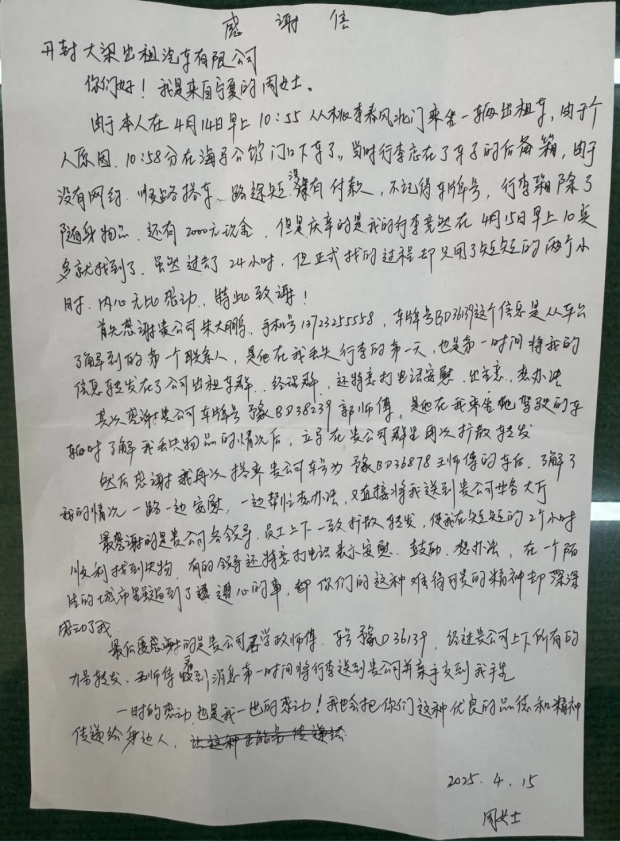 感谢信
开封大梁出租汽车有限公司
你们好！我是来自宁夏的周女士。
由于本人在4月14日早上10:55从桃李春风北门乘坐一辆出租车，由于个
人原因，10:58分在海马公馆门口下车了。当时行李忘在了车子的后备箱，由于
没有网约，顺路搭车，路途短，没有付款，不记得车牌号，行李箱除了
随身物品，还有2000元现金，但是庆幸的是我的行李竟然在4月15日早上10点
多就找到了，虽然过去了24小时，但正式找的过程却只用了短短的两个小
时，内心无比感动，特此致谢！
首先感谢贵公司朱大鹏，手机号13723255558，车牌号BD36139这个信息是从平台
了解到的第一个联系人，是他在我丢失行李的第一天，也是第一时间将我的
信息转发在了公司出租车群，经理群，还特意打电话安慰，出主意，想办法
其次感谢贵公司车牌号豫BD38239郭师傅，是他在我乘坐他驾驶的车
辆时了解我丢失物品的情况后，立马在贵公司群里再次扩散转发
然后感谢我再次搭乘贵公司车号为豫BD36878王师傅的车后，了解了
我的情况一路一边安慰，一边帮忙想办法，又直接将我送到贵公司业务大厅
最感谢的是贵公司各领导，员工上下一致扩散转发，使我在短短的2个小时
顺利找到失物，有的领导还特意打电话表示安慰，鼓励，想办法，在一个陌
生的城市虽遇到了糟心的事，却你们的这种难能可贵的精神却深深
感动了我
最后感谢的是贵公司学政师傅，车号豫D36139，经过贵公司上下所有的
力量转发，师傅看到消息第一时间将行李送到贵公司并亲手交到我手里
一时的感动，也是我一世的感动！我也会把你们这种优良的品德和精神
传递给身边人，
2025.4.15
周女士